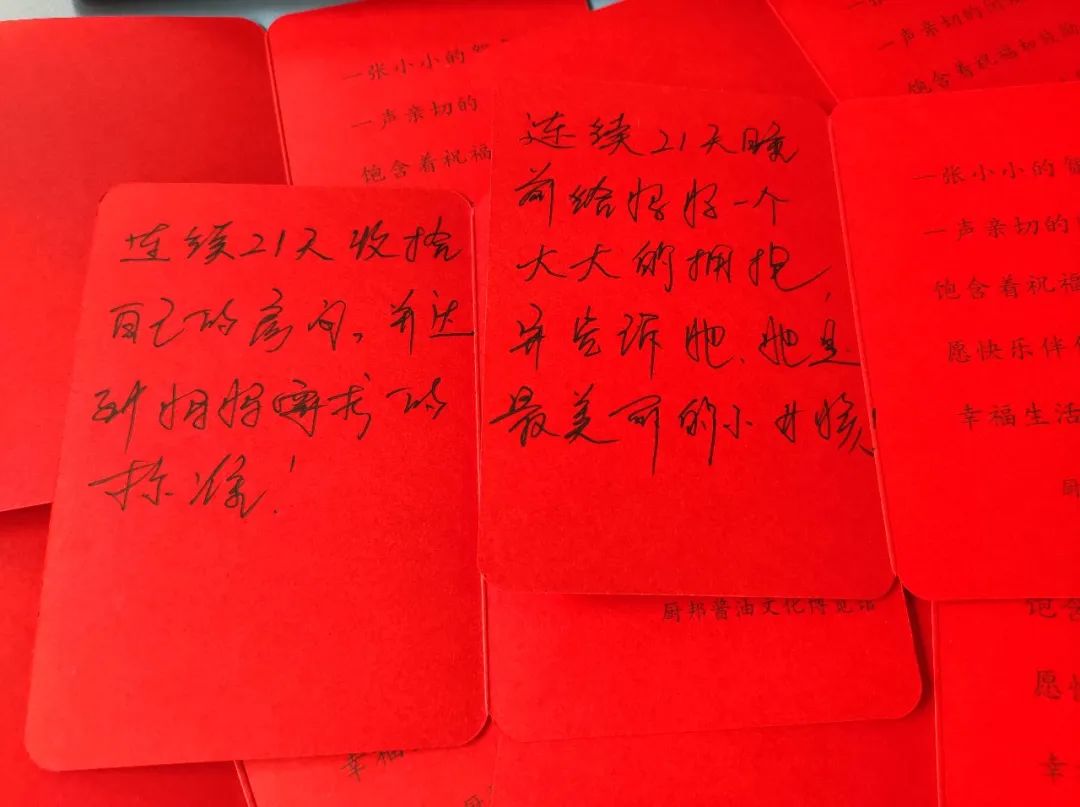 一张小小的
一声亲切的
饱含着祝福
一声亲切的
饱含着祝福和鼓励
连续21天收拾
自己的房间。并达
到妈妈要求的
标准！
连续21天睡
前给妈妈一个
大大的拥抱，
并告诉她、她是
最美丽的小女孩！
一张小小的
一声亲切的
饱含着祝福
愿快乐伴
幸福生活
厨
厨邦酱油文化博览馆
幸福
饱含
愿快
幸